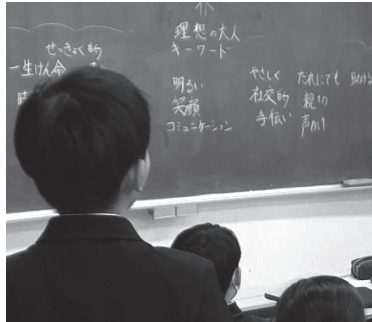 理想の大人
キーワード
せっきょく的
一生けん命
明るい
笑顔
コミュニケーション
やさしく
社交的
手伝い
だれにでも
親切
声かけ